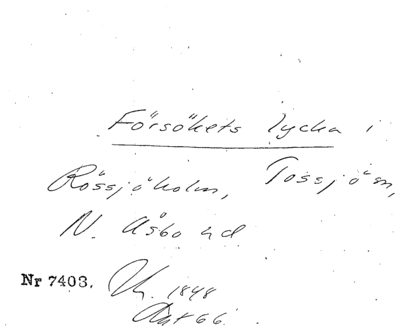 Försökets lycka i
Rössjöholm, Tossjön,
N. Åsbo hd
Nr 7403.
1848
66.